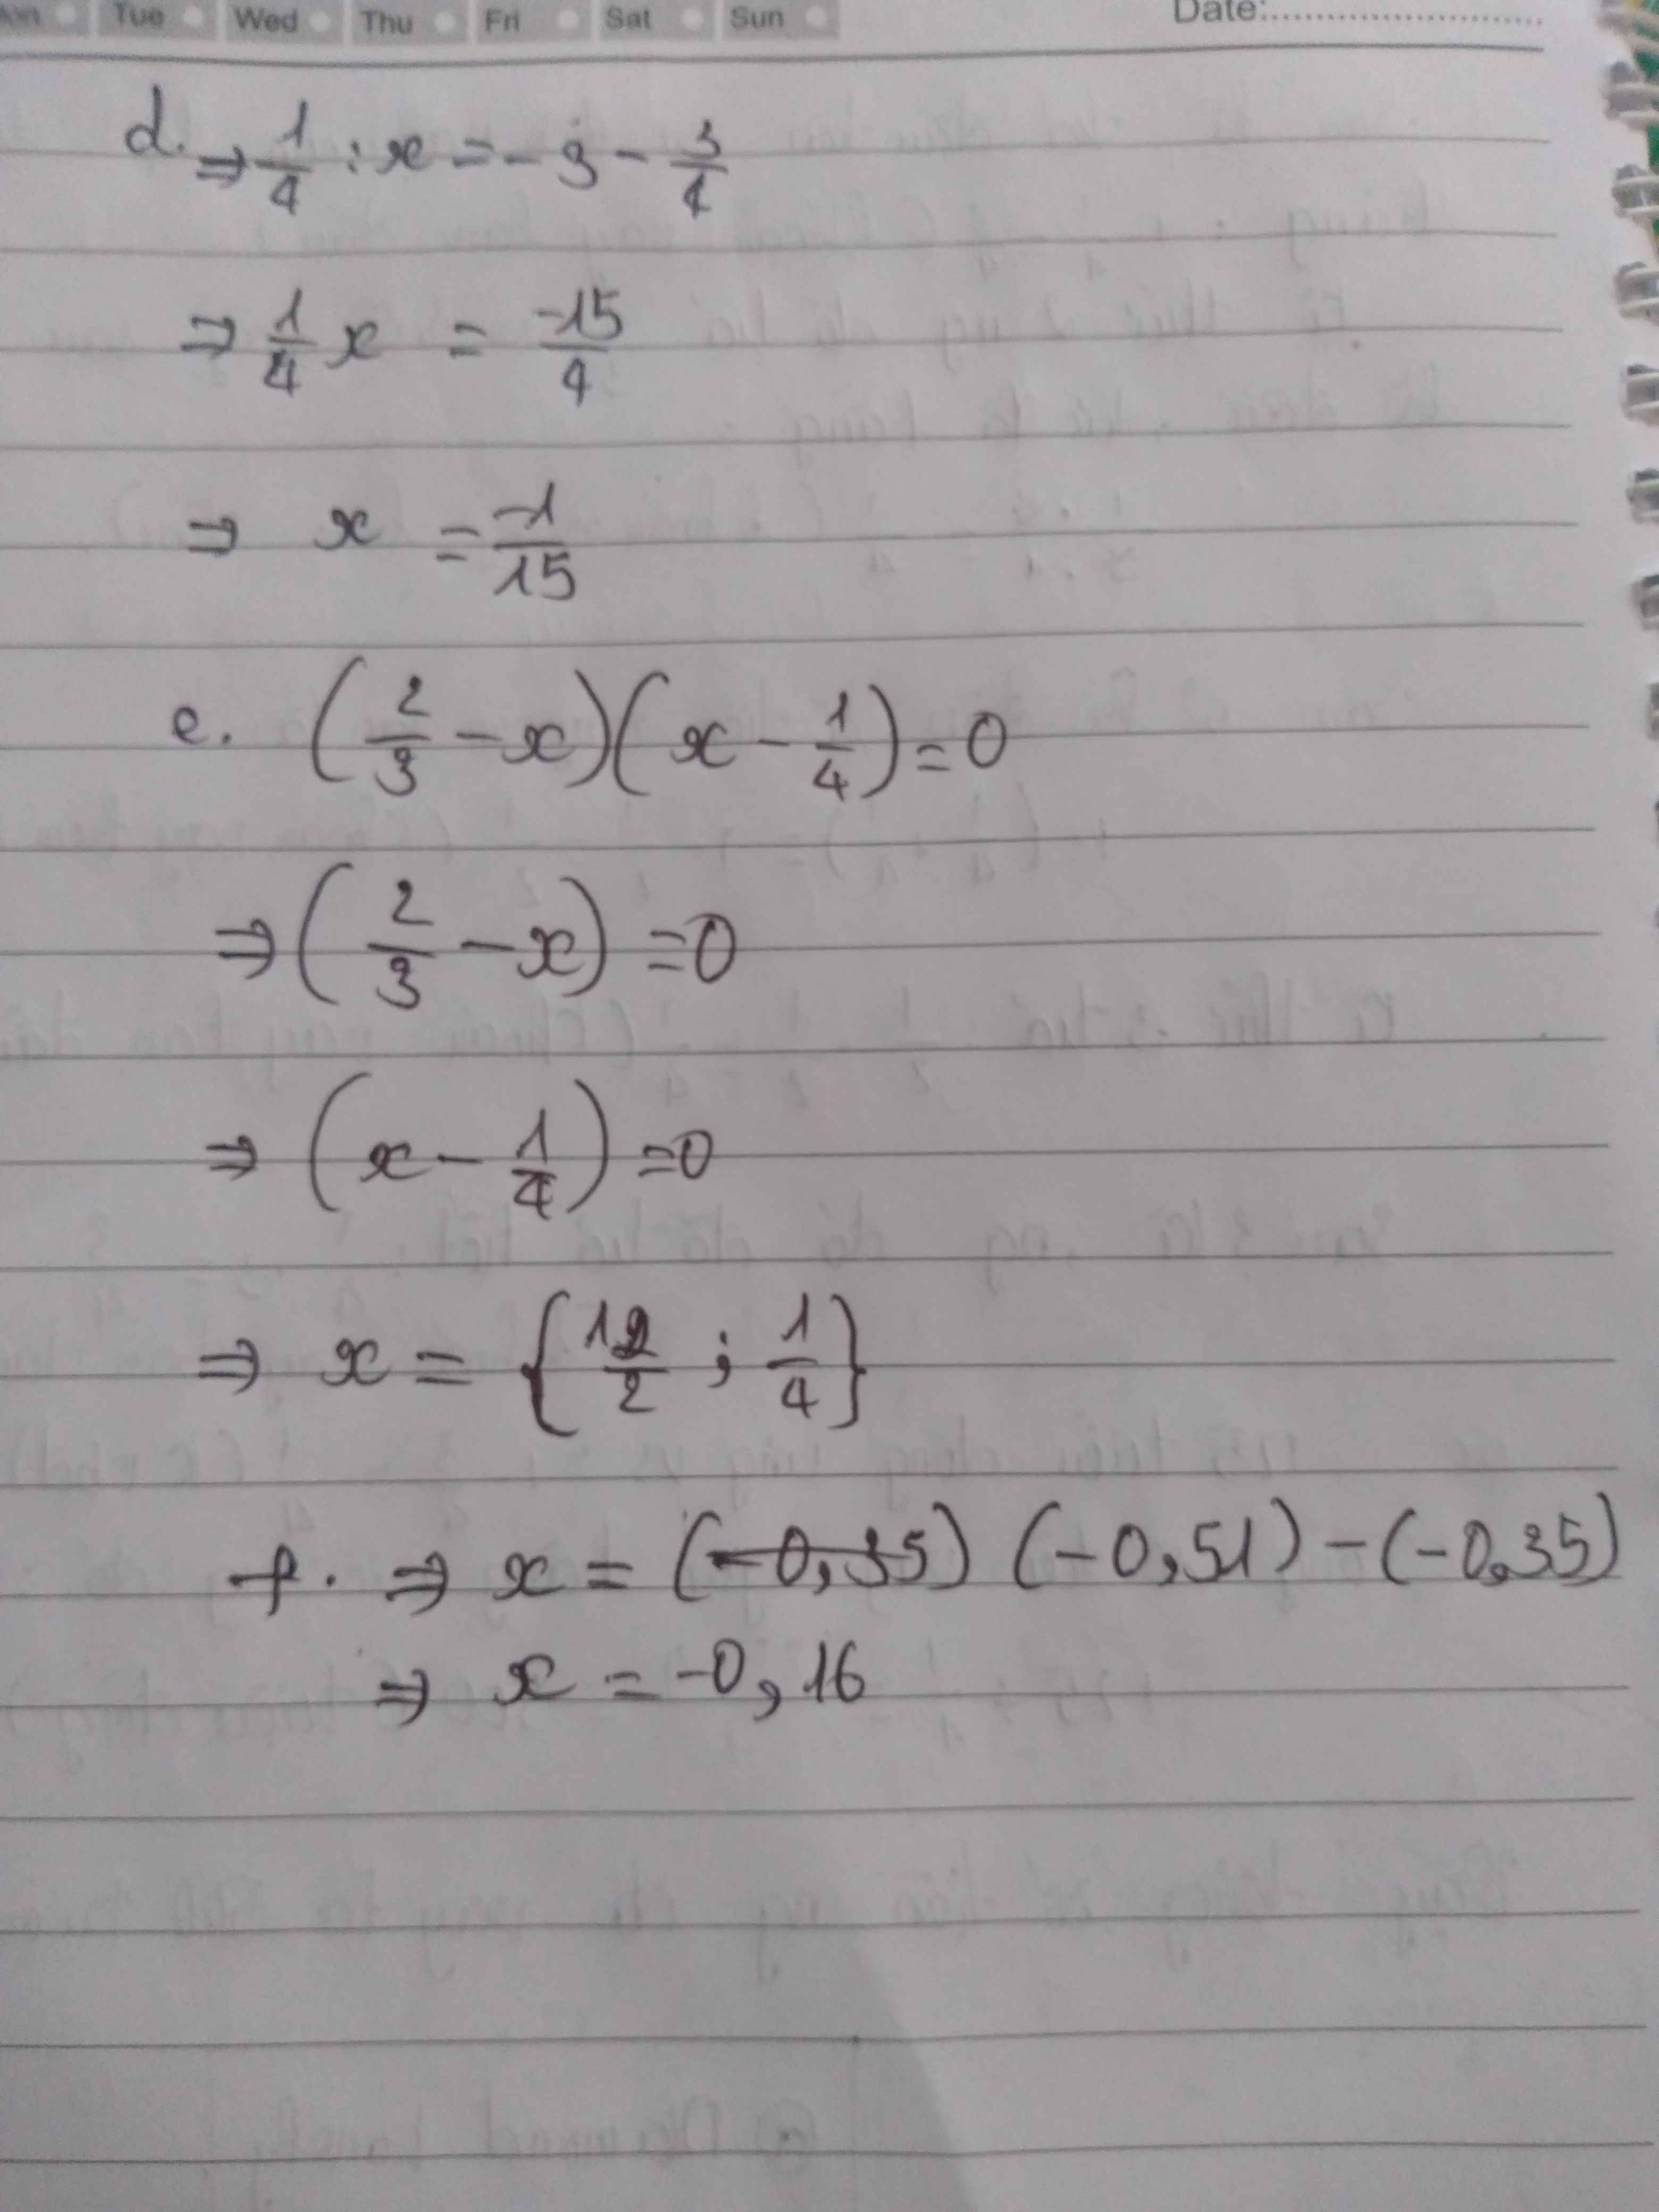 Tue Wed Thu Fri Sat Sun Date:
d. ⇒ 1/4 : x = -3 - 3/4
⇒ 1/4 x = -15/4
⇒ x = -1/15
e. (2/3 - x)(x - 1/4) = 0
⇒ (2/3 - x) = 0
⇒ (x - 1/4) = 0
⇒ x = { /2 ; 1/4 }
f. ⇒ x = (-0,35) (-0,51) - (-0,35)
⇒ x = -0,16